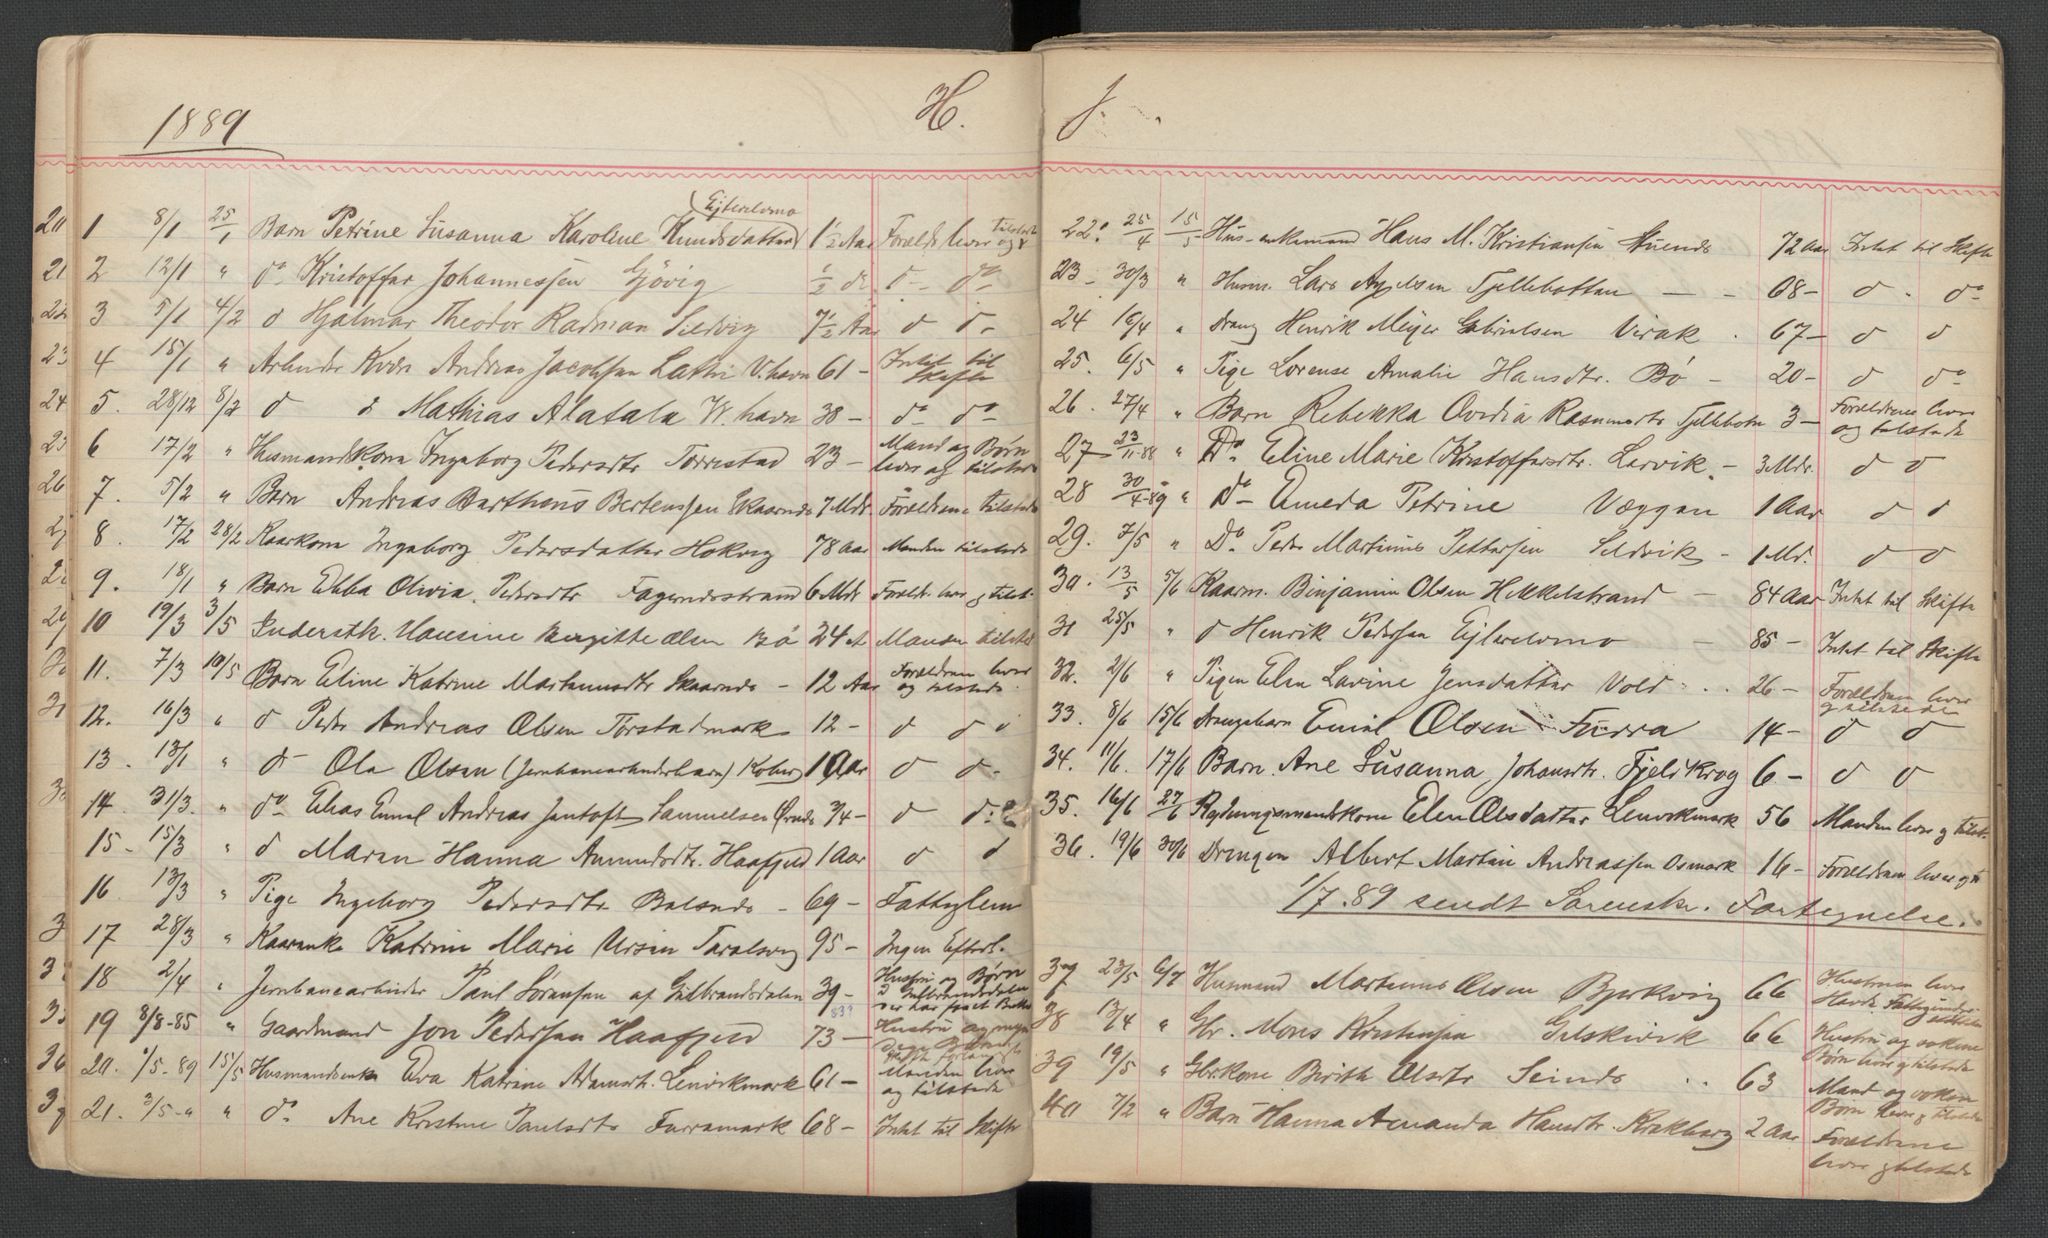 1889
H.
Ejterelvmo
1 8/1 25/1 Barn Petrine Susanna Karoline Knudsdatter 1½ Aar Foreldr. lever og
2 12/1 " do Kristoffer Johannessen Gjövig ½ do do
3 5/1 4/2 d Hjalmar Theodor Radman Sildvig 7½ Aar d d
4 15/1 " Andreas Jacobsen V.havn 61 – Intet til Skifte
5. 28/12 8/2 d d Mathias Alatala V.havn 38 – do do
6 17/2 " Husmandkona Ingeborg Pedersdtr Torrestad 23 – Mand og Børn lever og tilstede
7. 5/2 " Barn Andreas Barthens Bertenssen Skaarnds 7 Mdr. Foreldrene tilstede
8. 17/2 28/2 Kaarkone Ingeborg Pedersdatter Hokvig 78 Aar Manden tilstede
9. 18/1 " Barn Ebba Olivia Pedersdtr Fagernesstrand 6 Mdr Foreld. lever og tilst.
10 19/3 3/5 Inderstk. Hansine Bergitte Olsen Bø 24 A Manden tilsted
11. 7/3 10/5 Barn Eline Katrine Martinusdtr Skaarnds – 12 Aar Foreldrene lever og tilstede.
12. 16/3 " d Peder Andreas Olsen Torstadmark 12 – d d d
13. 13/1 " d Ola Olsen (Jernbanearbeiderbarn) Koberg 1 Aar d d
14. 31/3. " do Elias Emil Andreas Jentoft Samuelsen 3/4 – d d
15 – 15/3 " d Maren Hanna Amundsdtr. Haafjeld 1 Aar d d
16. 13/3 " Pige Ingeborg Pedersdtr Balsnds – 69 – Fattiglem
17 28/3 " Kaarenke Katrine Marie Ursin Taralsvig 95 – Ingen Efterl.
18 2/4 " Jernbanearbeider Paul Sörensen af Gulbrandsdalen 39 – Hustru og Børn i Gulbrandsdalen
19 8/8-85 " Gaardmand Jon Pedersen Haafjeld 73 – Hustru og
20. 1/5-89 15/5 Husmandsenke Eva Katrine Adamsdtr. Lenvikmark 61 – Manden lever og tilstede
21. 3/5-" " do Ane Kristine Paulsdtr Furramark 68 – Intet til Skifte
J.
22. 25/4 15/5 Hus-enkemand Hans M. Kristiansen 72 Aar Intet til Skifte
23 – 30/3 " Husm. Lars Axelsen Tjellebotten – – 68 – d do
24 16/4 " Dreng Henrik Meyer Gabrielsen Virak. 67 – d d
25. 6/5 " Pige Lorense Amalie Hansdtr. Bø – 20 – d do
26. 27/4 " Barn Rebekka Ovidia Rasmusdtr Tjellebotn 3 – Foreldrene lever og tilstede
27 – 23/11-88 " Do Eline Marie Kristoffersdtr. Larvik – 3 Mdr. d d
28 30/4-89 " Do Ameda Petrine Væggen 1 Aar d d
29. 7/5 " Do Peder Martinus Pettersen Sildvik – 1 Md. d d
30 13/5 5/6 Kaarm. Binjamin Olsen Hekkelstrand – 84 Aar Intet til Skifte
31 25/5 " d Henrik Pedersen Ejterelvmo – 85 – Intet til Skifte
32. 2/6 " Pigen Elen Lavine Jensdatter Vold .. 26 – Foreldrene lever og tilstede
33. 8/6 15/6 Drengebarn Emil Olsen Furra 14 – d d
34. 11/6. 17/6 Barn Ane Susanna Johansdtr. Fjeldkrog 6 – d d
35. 16/6 27/6 Rydningsmandskone Elen Olsdatter Lenvikmark 56 Manden lever og tilst.
36. 19/6 30/6 Drengen Albert Martin Andreassen Osmark 16 – Foreldrene lever og
1/7.89 sendt Sorensk. Fortegnelse.
37 23/5 6/7 Husmand Martinus Olsen Bjerkvig 66 Hustruen lever
38 13/4 " Gbr. Mons Kristensen Gilskvik 66 Hustru og voksne Børn lever og tilstede
39 19/5 " Gbrkone Birith Olsdtr Seinds .. 63 Mand og voksne Børn lever og tilstede
40 7/2 " Barn Hanna Amanda Hansdtr. Krakberg 2 Aar Foreldrene lever og tilstede